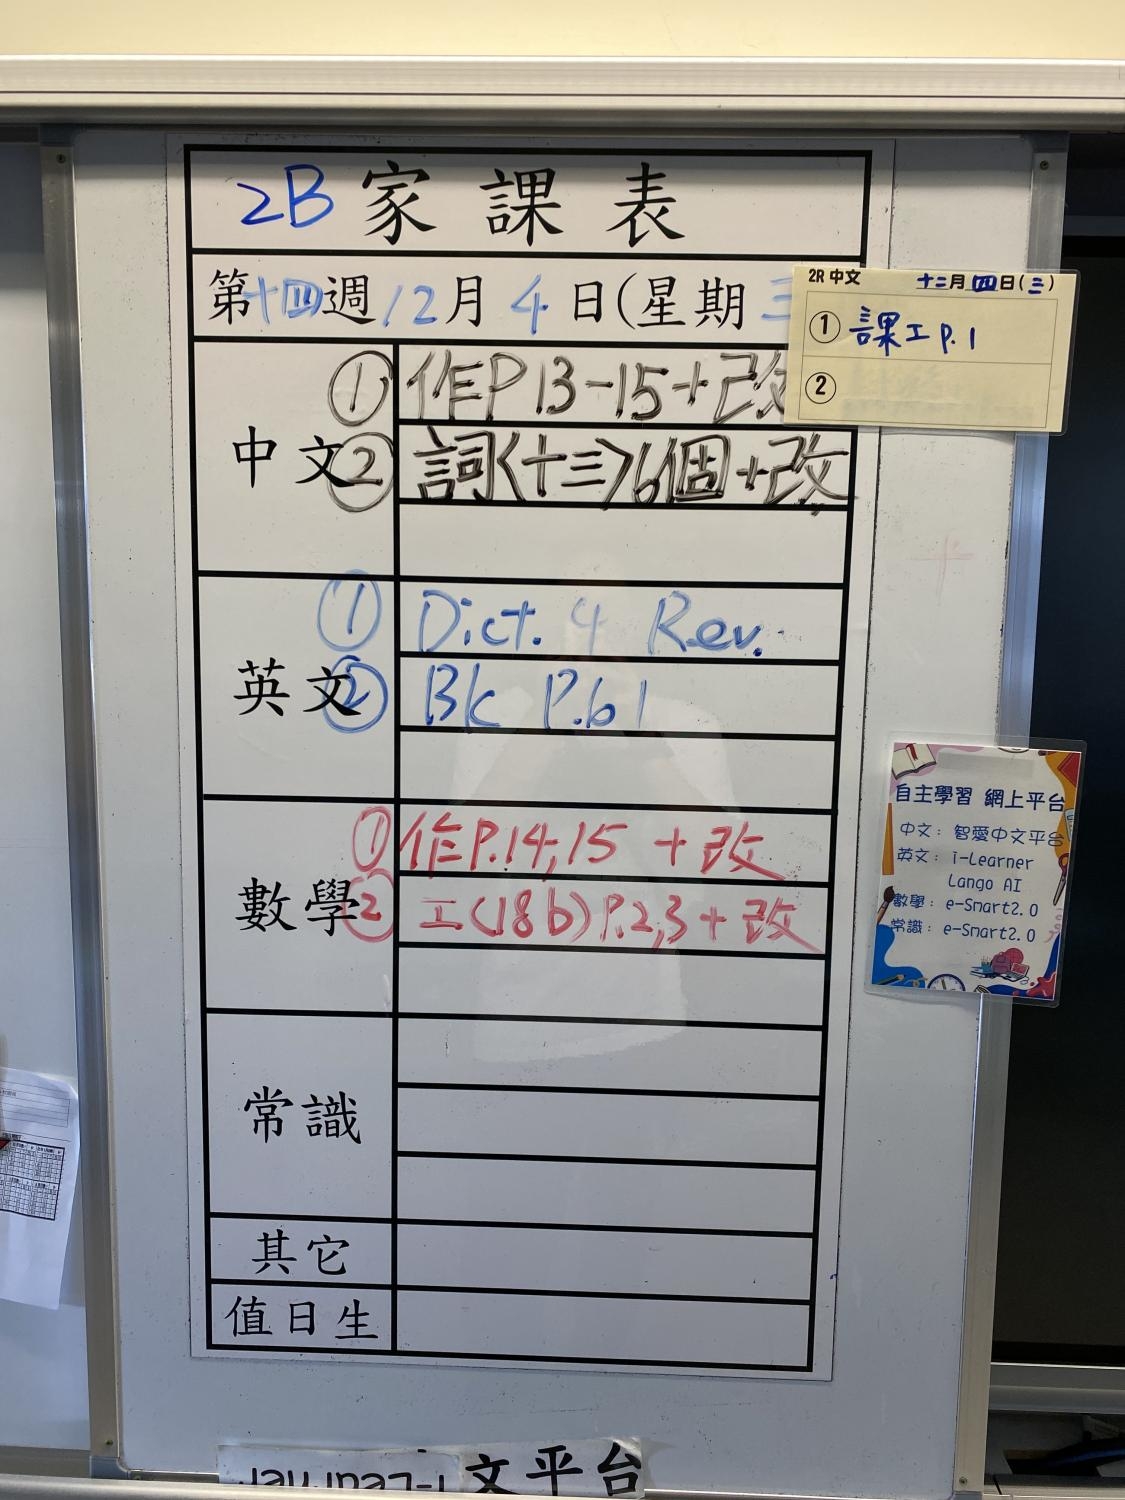 2B 家課表
第十四週 12月4日(星期三
中文
① 作P 13-15+改
② 詞〈十三〉6個+改
英文
① Dict. 4 Rev.
② Bk P.61
數學
① 作P.14,15 +改
② 工(18b) P.2,3+改
常識
其它
值日生
2R 中文 十二月四日(三)
① 課工 P.1
②
自主學習 網上平台
中文：智愛中文平台
英文：i-Learner
Lango AI
數學：e-Smart2.0
常識：e-Smart2.0
i-Learner
文平台